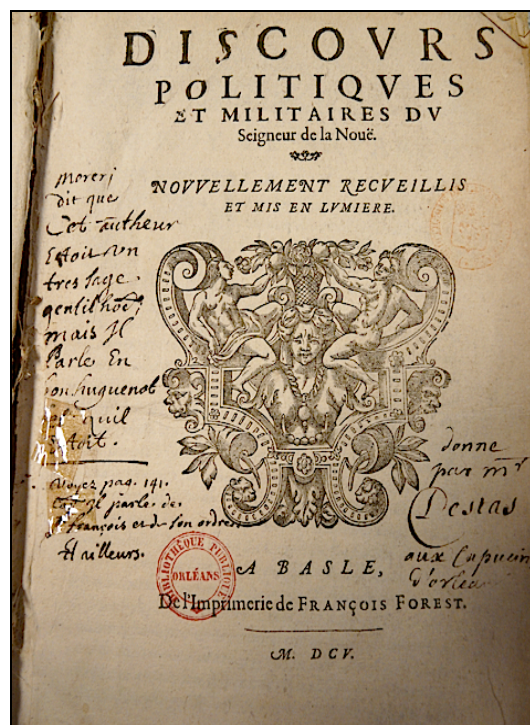 DISCOVRS
POLITIQVES
ET MILITAIRES DV
Seigneur de la Nouë.
NOVVELLEMENT RECVEILLIS
ET MIS EN LVMIERE.
Moreri
dit que
Cet autheur
Estoit un
tres sage
gentilhoe;
mais Il
Parle En
bon huguenot
quil
Estoit.
Voyez pag. 141.
parle de
francois et de son ordre
Et ailleurs.
donne
par mr
Destas
aux Capucin
d'orlea
BIBLIOTHÈQUE PUBLIQUE
ORLÉANS
A BASLE,
De l'Imprimerie de FRANÇOIS FOREST.
M. DCV.